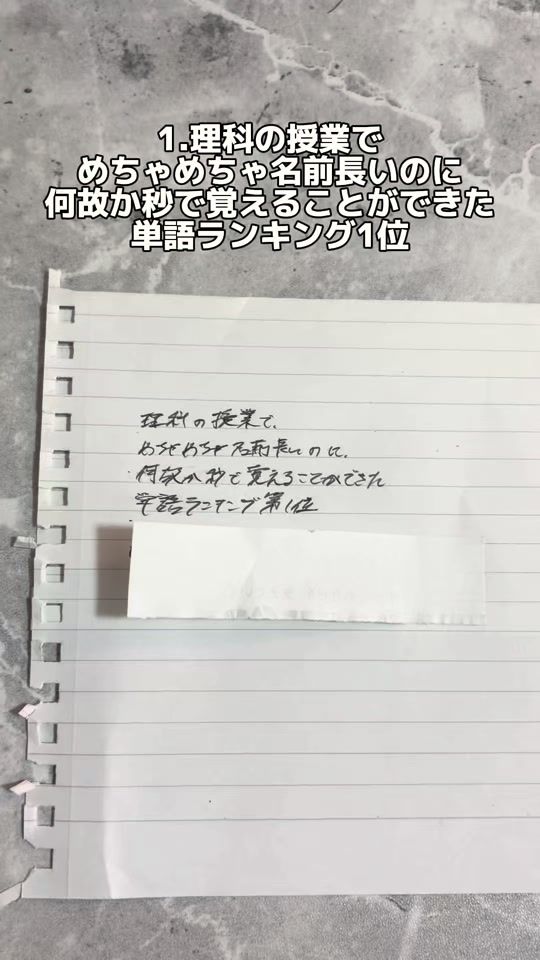 1.理科の授業で
めちゃめちゃ名前長いのに
何故か秒で覚えることができた
単語ランキング1位
理科の授業で、
めちゃめちゃ名前長いのに、
何故か秒で覚えることができた
単語ランキング第1位